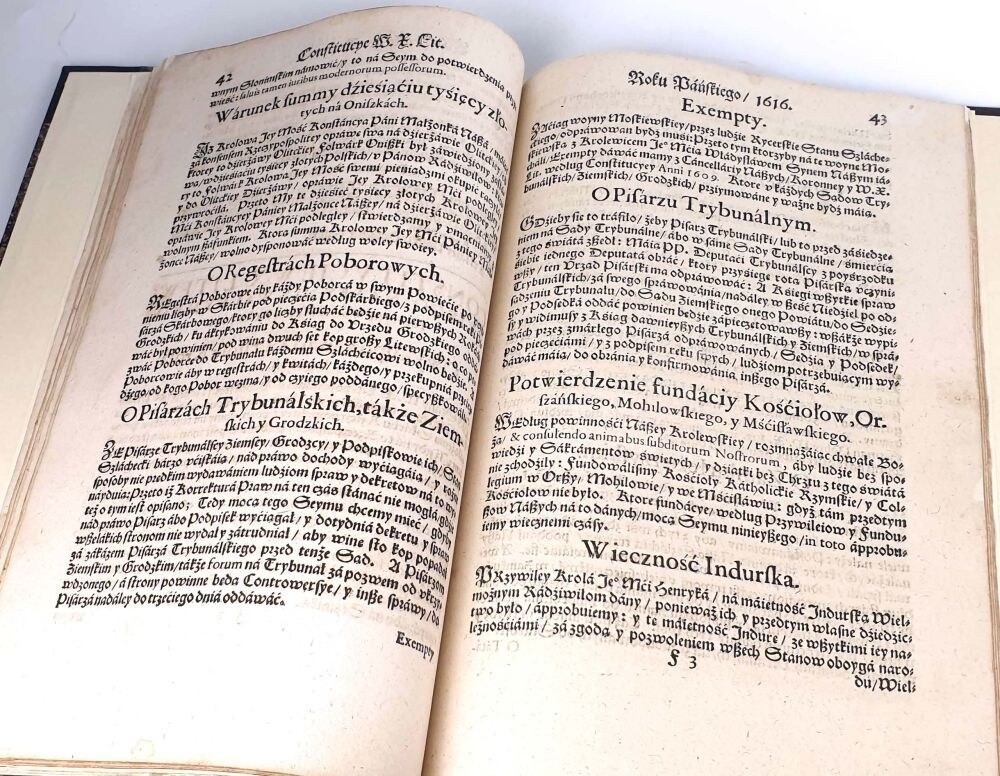 Constitucye W. X. Lit.
42
wnym Slonimskim námowić / y to ná Seym do potwierdzenia
wieść: saluis tamen iuribus modernorum possessorum.
Wárunek summy dźieśiąćiu tyśięcy zło-
tych ná Oniszkách.
IZ Krolowa Jey Mość Konstáncya Páni Małżonká Nászá /
zá konsensem Rzeczypospolitey opráwę swą ná dzierżáwie Olitckiey
ktorey to dzierżáwy Olitckiey Folwárk Oniszki był záwiedziony
w dźieśiąćiu tyśięcy złotych Polskich / v Pánow Rádziwiłow
ry to Folwárk Krolowa Jey Mość swemi pieniądzmi okupiłá / y
do Olitckiey Dzierżáwy / opráwie Jey Krolowey Mći podległey
przywroćiłá. Przeto My te dźieśięć tyśięcy złotych Krolowey Jey
Mći Konstáncyey Pániey Małżonce Nászey / ná dzierżáwie Olitckiey
opráwie Jey Krolowey Mći podległey / stwierdzamy y vmacniamy
wolnym száfunkiem. Ktora summá Krolowey Jey Mći Pániey Mał-
żonce Nászey / wolno dysponowáć według woley swoiey.
O Regestrách Poborowych.
REgestrá Poborowe áby káżdy Poborcá w swym Powiećie po
nieniu liczby w Skárbie pod pieczęćią Podskárbiego / z podpisem ręki Pi-
sárzá Skárbowego / ktory go liczby słucháć będźie ná pierwszych Rokách
Grodzkich / ku áktykowániu do Kśiąg do Vrzędu Grodzkiego oddá-
wáć był powinien / pod winą dwuset kop groszy Litewskich : o co po-
zwáć Poborcę do Trybunału káżdemu Szláchćicowi wolno będźie.
Poborcowie áby w regestrách / y kwitách / káżdego / y przekupniá
dzą / od kogo Pobor wezmą / y od czyiego poddánego / specyfikowáli.
O Pisárzách Trybunálskich, tákże Ziem-
skich y Grodzkich.
ZE Pisárze Trybunalscy Ziemscy / Grodzcy / y Podpiskowie ich / Stan
Szláchecki bárzo vćiskáią / nád práwo dochody wyćiągáią / y rożne
sposoby nie prędkim wydawániem ludźiom spraw y dekretow ná to wy-
náyduią: Przeto iż Korrekturá Praw ná ten czás stánąć nie mogłá / gdzie
też o tym iest opisano; Tedy mocą tego Seymu chcemy mieć / gdyby
nád práwo Pisarz ábo Podpisek wyćiągał / y do tydniá dekretu y spraw
wszelákich stronom nie wydał y zátrudniał / áby winę sto kop popadał
zá zakázem Pisárzá Trybunálskiego przed tenże Sąd. A Pisárzom
Ziemskim y Grodzkim / tákże forum ná Trybunał zá pozwem od vkrzy-
wdzonego / á strony powinne będą Controwersye / y insze spráwy / do
Pisárzá nádáley do trzećiego dniá oddáwáć.
Exempty
Roku Páńskiego / 1616.
43
Exempty.
ZAćiąg woyny Moskiewskiey / przez ludźie Rycerskie Stanu Szláche-
ckiego / odpráwowan bydź muśi: Przeto tym ktorzyby ná tę woynę Mo-
skiewską z Krolewicem Jeº Mćią Włádysłáwem Synem Nászym iá-
cháli / Exempty dáwáć mamy z Cáncelláriy Nászych / Koronney y W. X.
Lit. według Constitucyey Anni 1609. Ktore v káżdych Sądow Try-
bunálskich / Ziemskich / Grodzkich / przyimowáne y ważne bydź máią.
O Pisárzu Trybunálnym.
GDżieby się to tráfiło / żeby Pisarz Trybunálski / lub to przed záśiedze-
niem ná Sądy Trybunálne / ábo w sáme Sądy Trybunálne / śmierćią
z tego świátá zszedł: Máią PP. Deputaći Trybunálscy z pośrzodku
śiebie iednego Deputatá obráć / ktory przyśięgę rotą Pisárską vczyni-
wszy / ten Vrząd Pisárski ma odpráwowáć: A Kśięgi wszytkie spraw
Trybunálskich / zá swego spráwowánia / nádáley w sześć Niedźiel po od-
sądzeniu Trybunału / do Sądu Ziemskiego onego Powiátu / do Sędzie-
go y Podsędká oddáć powinien będźie zápieczętowawszy: wszákże wypi-
sy y widimusy z Kśiąg dawnieyszych Trybunálskich y Ziemskich / w sprá-
wách przez zmárłego Pisárzá odpráwowánych / Sędźia y Podsędek /
pod pieczęćiámi / y z podpisem ręku swych / ludźiom potrzebuiącym wy-
dáwáć máią / do obránia y konfirmowánia inszego Pisárzá.
Potwierdzenie fundáciy Kośćiołow, Or-
száńskiego, Mohilowskiego, y Mśćisławskiego.
WEdług powinnośći Nászey Krolewskiey / rozmnażáiąc chwałę Bo-
żą / & consulendo animabus subditorum Nostrorum, áby ludźie bez spo-
wiedźi y Sákrámentow świętych / y dźiatki bez Chrztu z tego świátá
nie zchodźiły: Fundowáliśmy Kośćioły Kátholickie Rzymskie / y Col-
legium w Orszy / Mohilowie / y we Mśćisławiu: gdyż tám przedtym
Kośćiołow nie było. Ktore fundácye / według Przywileiow y Fundu-
szow Nászych ná to dánych / mocą Seymu ninieyszego / in toto ápprobu-
iemy wiecznemi czásy.
Wieczność Indurska.
PRzywiley Krolá Jeº Mći Henryká / ná máiętność Indurską Wiel-
możnym Rádziwiłom dány / ponieważ ich y przedtym własne dźiedźic-
two było / ápprobuiemy: y tę máiętność Indurę / ze wszytkimi iey na-
leżnośćiámi / zá zgodą y pozwoleniem wszech Stanow oboygá naro-
F 3
du / Wiel-